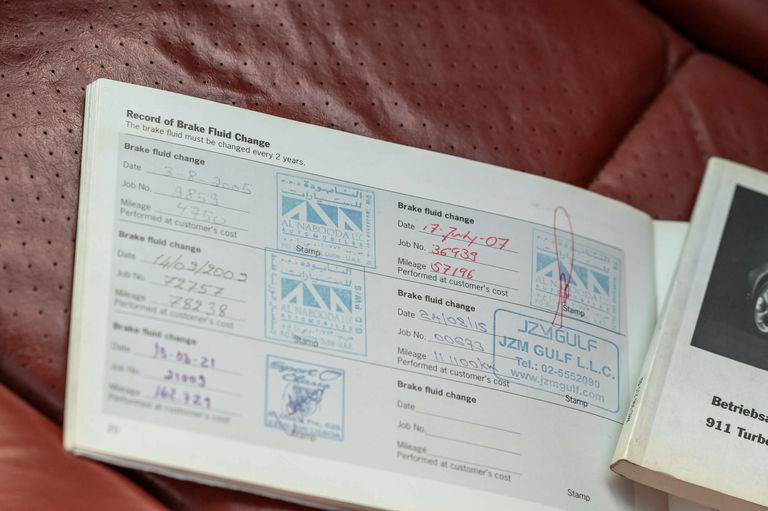 Record of Brake Fluid Change
The brake fluid must be changed every 2 years.
Brake fluid change
Date 3-8-2005
Job No. 9859
Mileage 4750
Performed at customer's cost
النابودة
للسيارات
AL NABOODA LLC
AUTOMOBILES
Stamp
Brake fluid change
Date 14/09/2009
Job No. 72757
Mileage 78238
Performed at customer's cost
النابودة
للسيارات
AL NABOODA LLC
AUTOMOBILES
Stamp
Brake fluid change
Date 13-03-21
Job No. 21009
Mileage 162.721
Performed at customer's cost
Sport
Classic
Stamp
Brake fluid change
Date 17-July-07
Job No. 36939
Mileage 57196
Performed at customer's cost
AL NABOODA LLC
AUTOMOBILES
Stamp
Brake fluid change
Date 24/08/15
Job No. 00673
Mileage 111100km
Performed at customer's cost
JZM GULF
JZM GULF L.L.C.
Tel.: 02-5552090
www.jzmgulf.com
Stamp
Brake fluid change
Date
Job No.
Mileage
Performed at customer's cost
Stamp
911 Turbo